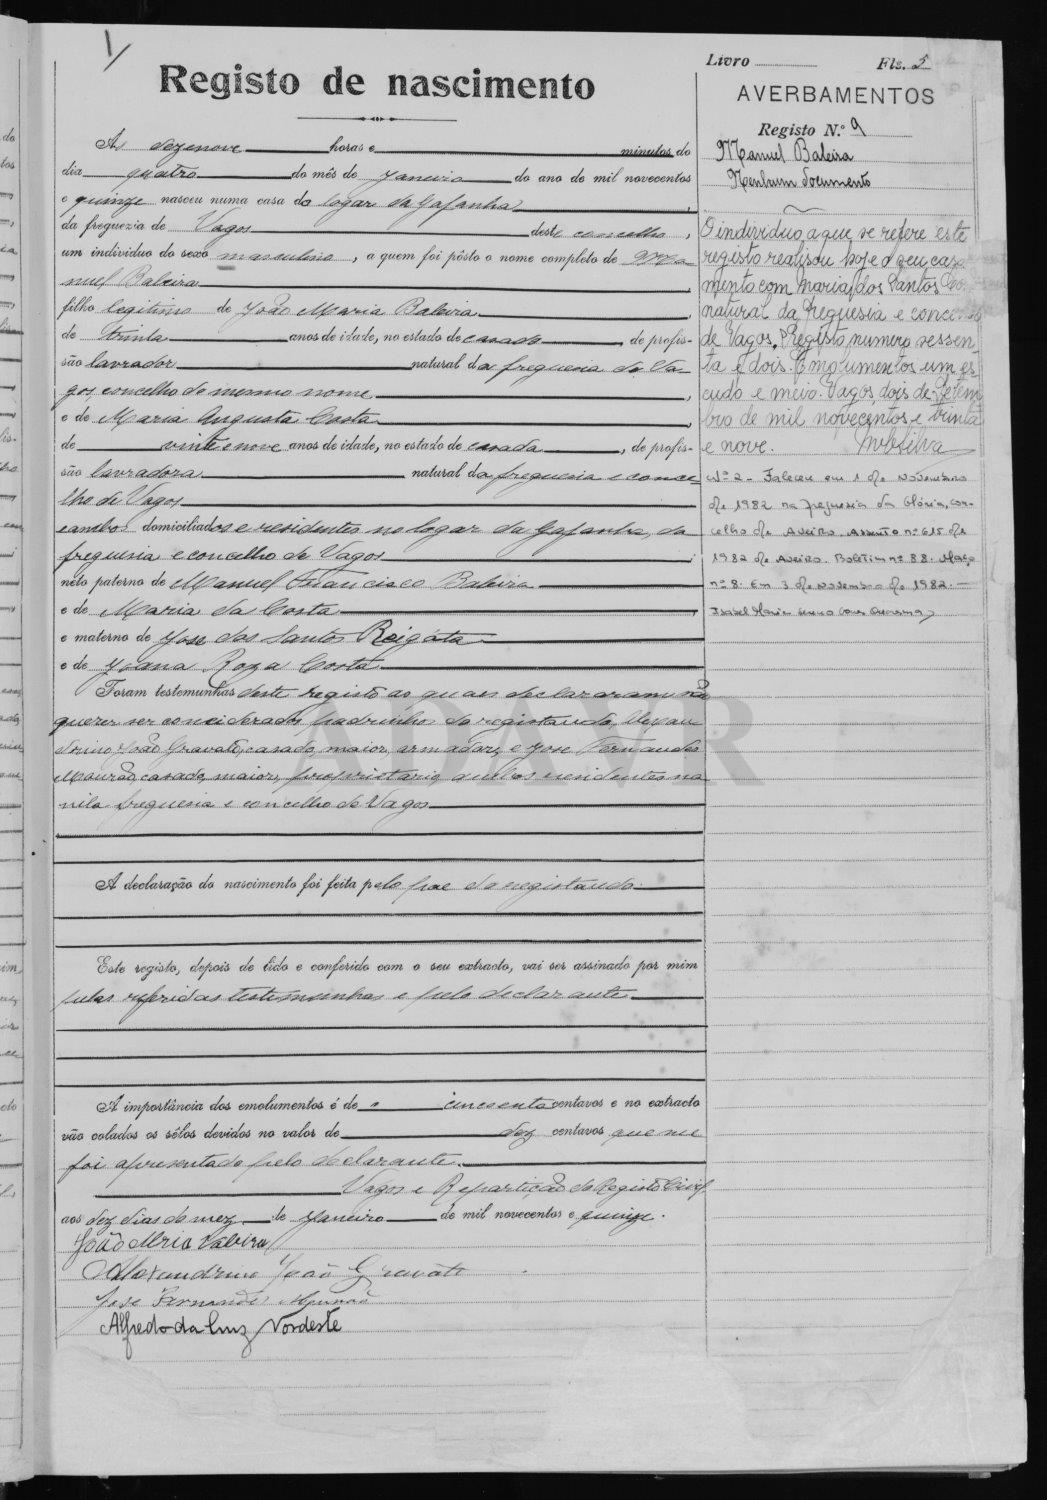 1/
Registo de nascimento
Ás dezenove horas e minutos do
dia quatro do mês de Janeiro do ano de mil novecentos
e quinze nasceu numa casa do logar da Gafanha,
da freguezia de Vagos deste concelho,
um individuo do sexo masculino, a quem foi pôsto o nome completo de Ma-
nuel Baleira
filho legitimo de João Maria Baleira,
de trinta anos de idade, no estado de casado, de profis-
são lavrador natural da freguesia de Va-
gos concelho do mesmo nome,
e de Maria Augusta Costa,
de vinte e nove anos de idade, no estado de casada, de profis-
são lavradora natural da freguesia e conce-
lho de Vagos
e ambos domiciliados e residentes no logar da Gafanha, da
freguesia e concelho de Vagos;
neto paterno de Manuel Francisco Baleira
e de Maria da Costa,
e materno de Jose dos Santos Reigóta
e de Joana Roza Costa
Foram testemunhas deste registo as quaes declararam não
querer ser considerados padrinhos do registando, Alexan
drino João Gravato, casado, maior, armador, e Jose Fernandes
Mourão, casado, maior, proprietario, ambos residentes na
vila freguesia e concelho de Vagos
A declaração do nascimento foi feita pelo pae do registando.
Este registo, depois de lido e conferido com o seu extracto, vai ser assinado por mim
pelas referidas testemunhas e pelo declarante
A importância dos emolumentos é de cincoenta centavos e no extracto
vão colados os sêlos devidos no valor de dez centavos que me
foi apresentado pelo declarante.
Vagos e Repartição do Registo Civil
aos dez dias do mez de Janeiro de mil novecentos e quinze.
João Mria Valeira
Alexandrino João Gravato
Jose Fernandes Mourão
Alfredo da Cruz Nordeste
Livro Fls. 5
AVERBAMENTOS
Registo N.º 9
Manuel Baleira
Nenhum documento
O individuo a que se refere este
registo realisou hoje o seu casa
mento com Maria dos Santos
natural da freguesia e concelho
de Vagos. Registo numero sessen-
ta e dois. Emolumentos um es-
cudo e meio. Vagos, dois de Setem
bro de mil novecentos e trinta
e nove.
Nº 2 - Faleceu em 1 de Novembro
de 1982 na freguesia da Glória, con-
celho de Aveiro. Assento nº 615 de
1982 de Aveiro. Boletim nº 88. Maço
nº 8. Em 3 de Novembro de 1982.
ADAVR